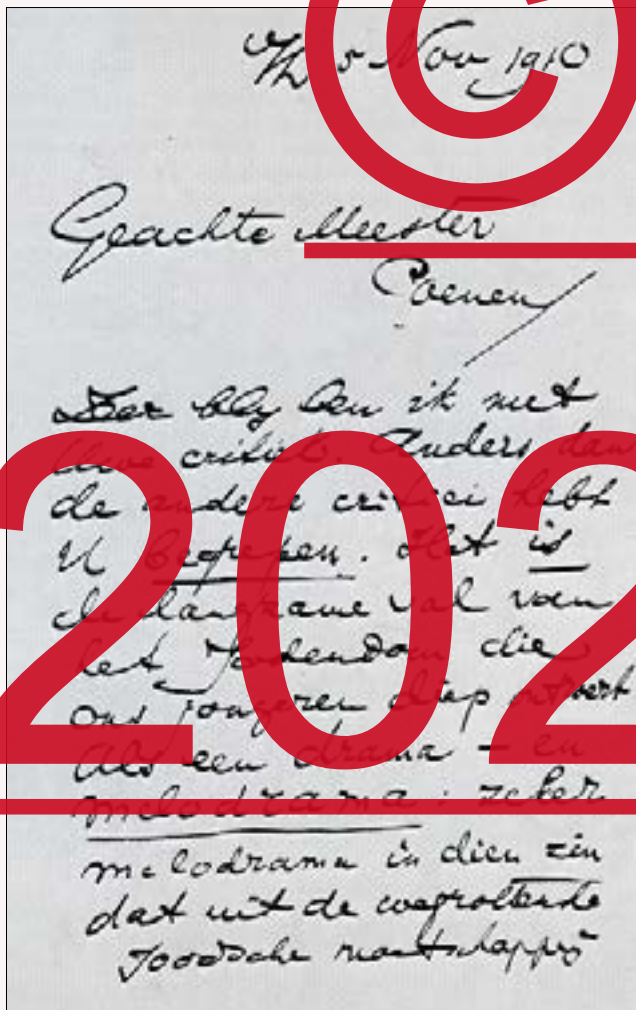 ©
5 Nov 1910
Geachte Meester
Coenen
Zeer bly ben ik met
Uwe critiek. Anders dan
de andere critici hebt
U begrepen. Het is
de langzame val van
het Jodendom die
ons jongeren diep ontroert
als een drama – en
melodrama: zeker
melodrama in dien zin
dat uit de wegrottende
Joodsche maatschappy
202